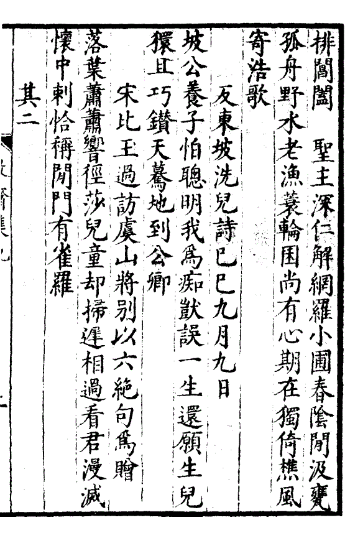 排閶闔　聖主深仁解網羅小圃春陰閒汲甕
孤舟野水老漁蓑輪囷尚有心期在獨倚樵風
寄浩歌
反東坡洗兒詩己巳九月九日
坡公養子怕聰明我爲痴獃誤一生還願生兒
獧且巧鑽天驀地到公卿
宋比玉過訪虞山將别以六絶句爲贈
落葉蕭蕭響徑莎兒童却掃遲相過看君漫滅
懷中刺恰稱閒門有雀羅
其二